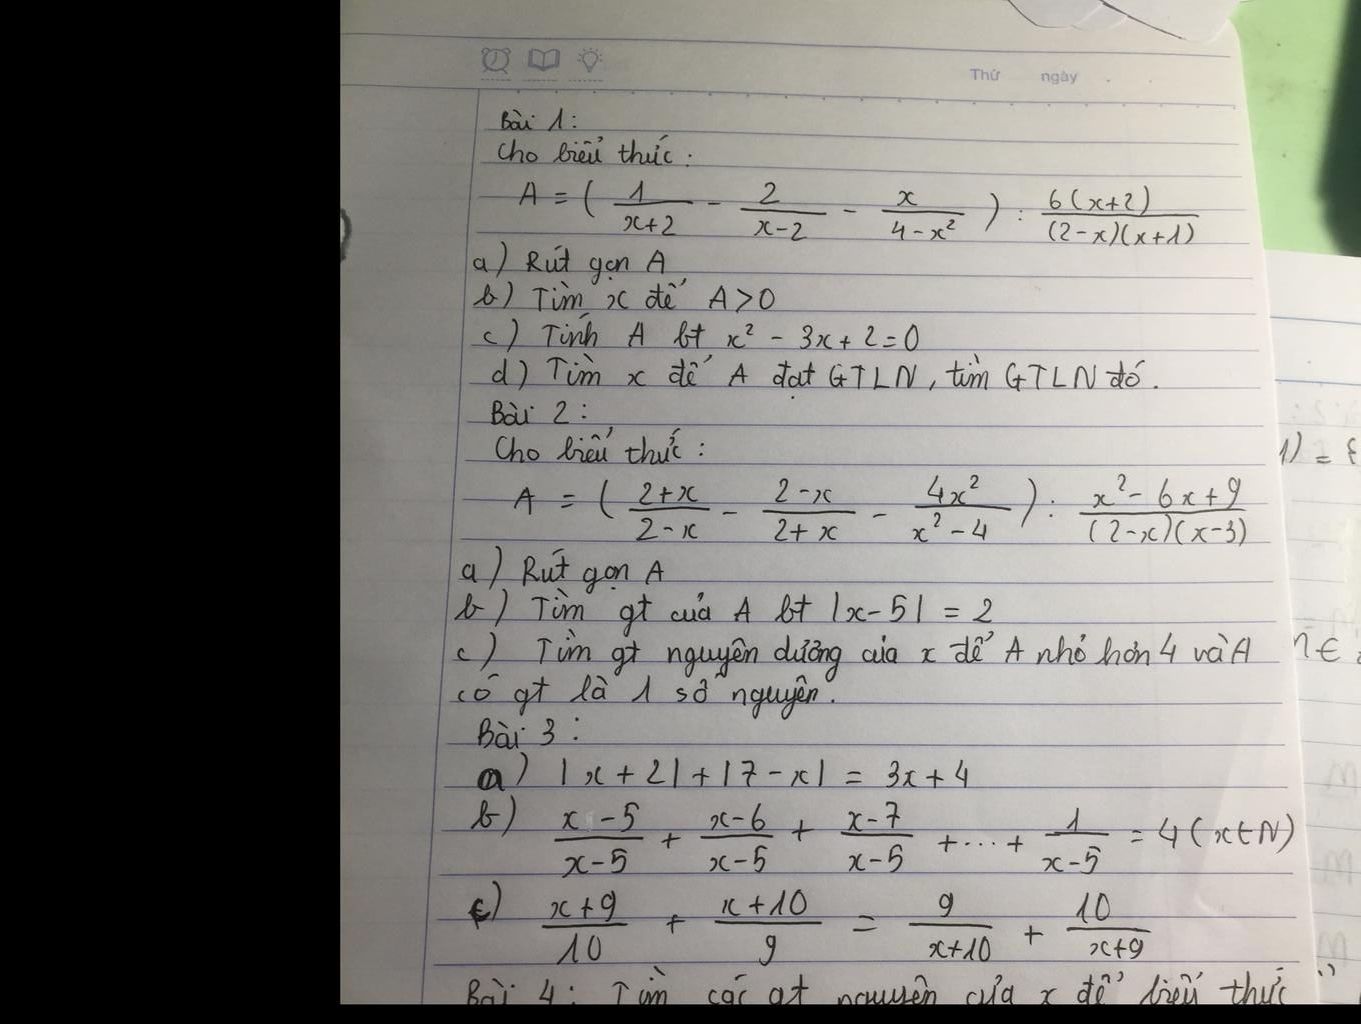 Thứ ngày
Bài 1:
Cho biểu thức:
A = ( 1/(x+2) - 2/(x-2) - x/(4-x²) ) : 6(x+2)/((2-x)(x+1))
a) Rút gọn A
b) Tìm x để A>0
c) Tính A bt x² - 3x + 2 = 0
d) Tìm x để A đạt GTLN, tìm GTLN đó.
Bài 2:
Cho biểu thức:
A = ( (2+x)/(2-x) - (2-x)/(2+x) - 4x²/(x²-4) ) : (x²-6x+9)/((2-x)(x-3))
a) Rút gọn A
b) Tìm gt của A bt |x-5| = 2
c) Tìm gt nguyên dương của x để A nhỏ hơn 4 và A
có gt là 1 số nguyên.
Bài 3:
a) |x+2|+|7-x| = 3x+4
b) (x-5)/(x-5) + (x-6)/(x-5) + (x-7)/(x-5) +...+ 1/(x-5) = 4 (x∈N)
c) (x+9)/10 + (x+10)/9 = 9/(x+10) + 10/(x+9)
Bài 4: Tìm các gt nguyên của x để biểu thức